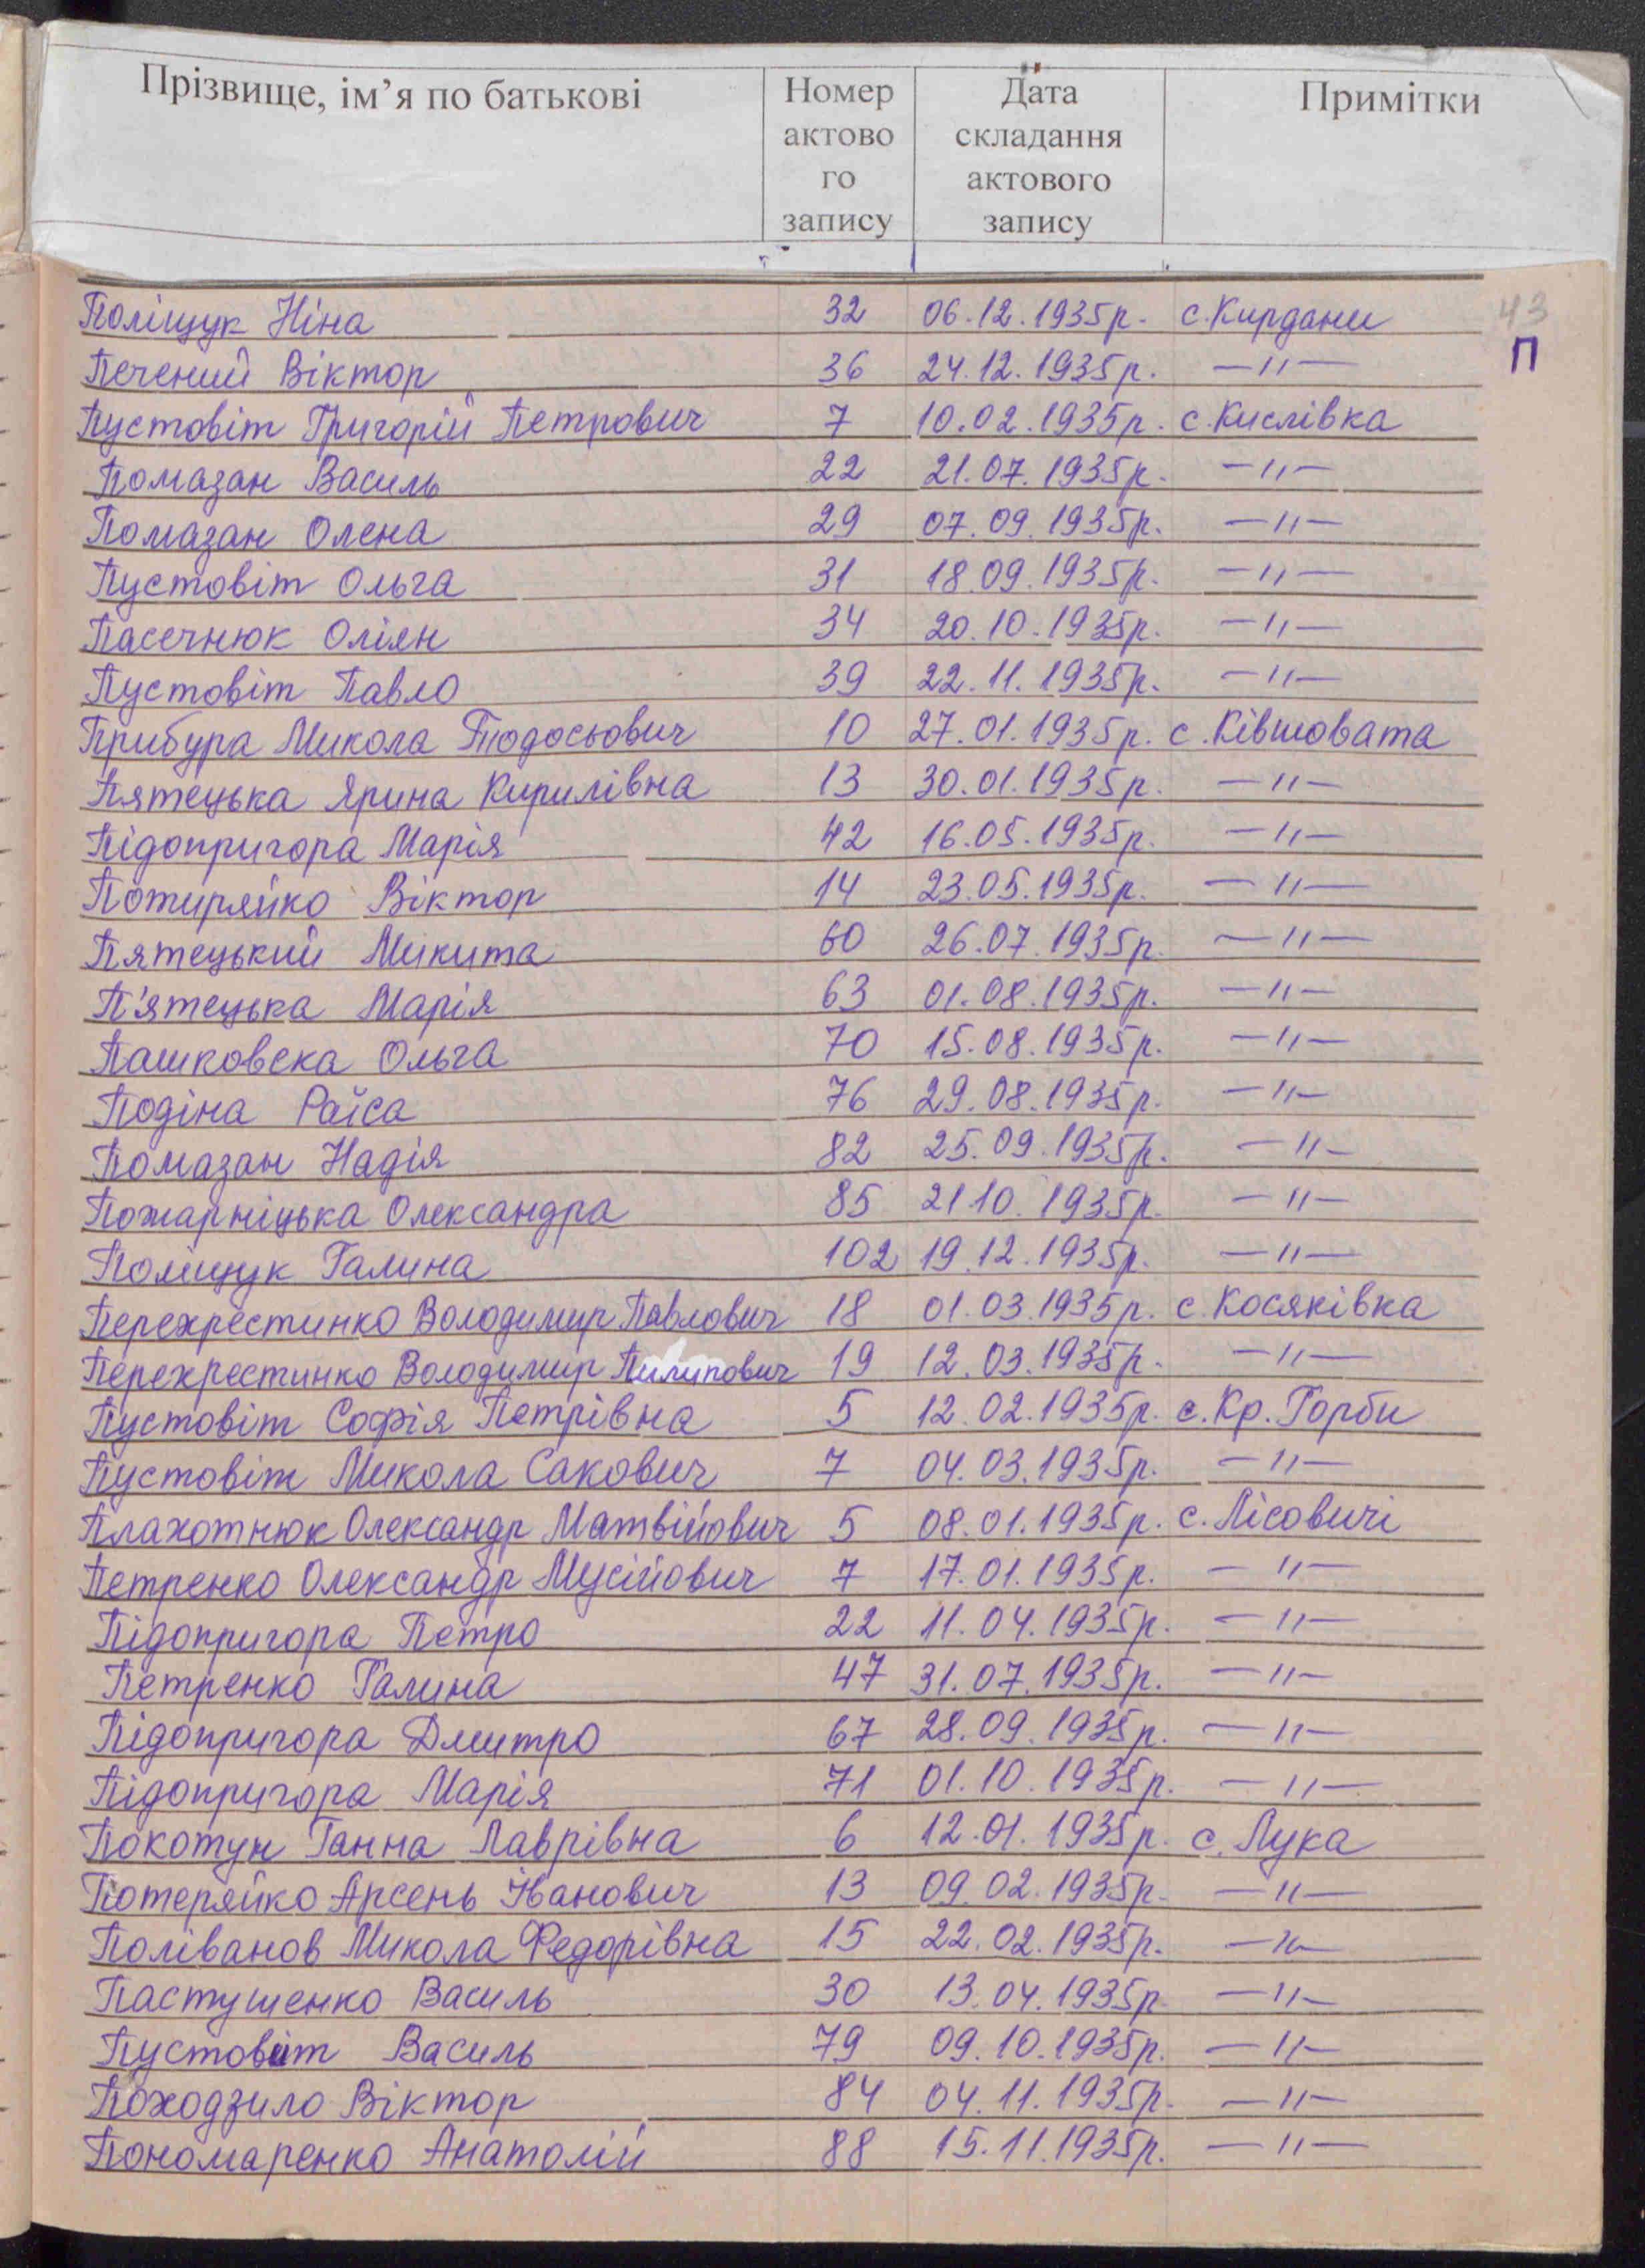 Прізвище, ім’я по батькові Номер актово го запису Дата складання актового запису Примітки
43
П
Поліщук Ніна 32 06.12.1935р. с.Кирдани
Печений Віктор 36 24.12.1935р. —//—
Пустовіт Григорій Петрович 7 10.02.1935р. с.Кислівка
Помазан Василь 22 21.07.1935р. —//—
Помазан Олена 29 07.09.1935р. —//—
Пустовіт Ольга 31 18.09.1935р. —//—
Пасечнюк Оліян 34 20.10.1935р. —//—
Пустовіт Павло 39 22.11.1935р. —//—
Прибура Микола Тодосьович 10 27.01.1935р. с.Ківшовата
Пятецька Ярина Кирилівна 13 30.01.1935р. —//—
Підопригора Марія 42 16.05.1935р. —//—
Потиряйко Віктор 14 23.05.1935р. —//—
Пятецький Микита 60 26.07.1935р. —//—
П'ятецька Марія 63 01.08.1935р. —//—
Пашковска Ольга 70 15.08.1935р. —//—
Подіна Раїса 76 29.08.1935р. —//—
Помазан Надія 82 25.09.1935р. —//—
Пожарніцька Олександра 85 21.10.1935р. —//—
Поліщук Галина 102 19.12.1935р. —//—
Перехрестинко Володимир Павлович 18 01.03.1935р. с.Косяківка
Перехрестинко Володимир Пилипович 19 12.03.1935р. —//—
Пустовіт Софія Петрівна 5 12.02.1935р. с.Кр.Горби
Пустовіт Микола Сакович 7 04.03.1935р. —//—
Плахотнюк Олександр Матвійович 5 08.01.1935р. с.Лісовичі
Петренко Олександр Мусійович 7 17.01.1935р. —//—
Підопригора Петро 22 11.04.1935р. —//—
Петренко Галина 47 31.07.1935р. —//—
Підопригора Дмитро 67 28.09.1935р. —//—
Підопригора Марія 71 01.10.1935р. —//—
Покотун Ганна Лаврівна 6 12.01.1935р. с.Лука
Потеряйко Арсень Іванович 13 09.02.1935р. —//—
Поліванов Микола Федорівна 15 22.02.1935р. —//—
Пастушенко Василь 30 13.04.1935р. —//—
Пустовіт Василь 79 09.10.1935р. —//—
Походзило Віктор 84 04.11.1935р. —//—
Пономаренко Анатолій 88 15.11.1935р. —//—